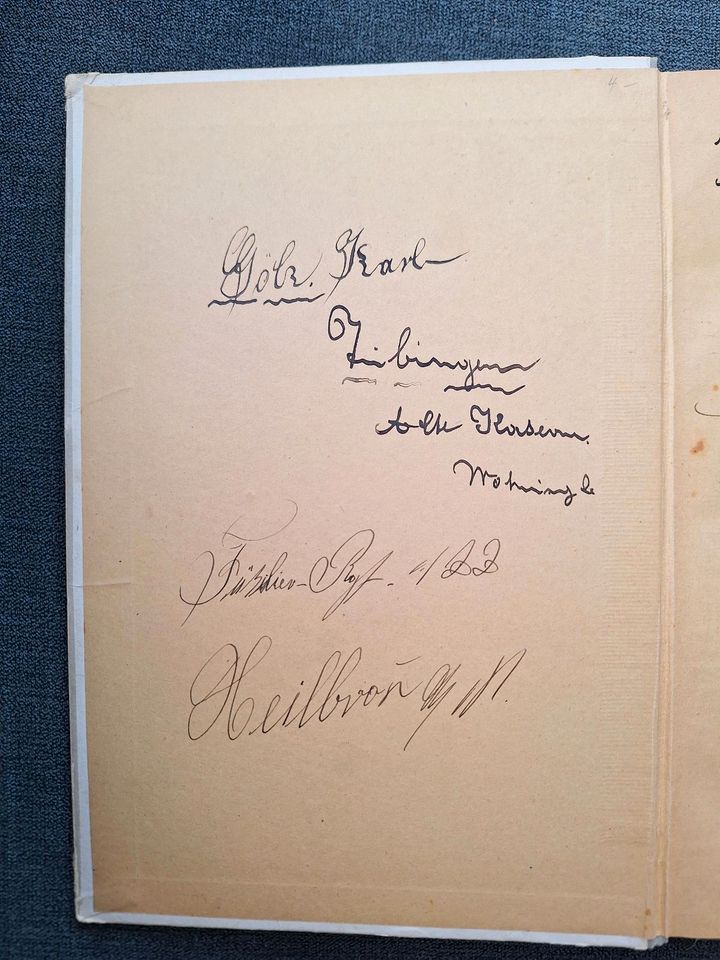 4 –
Gölz. Karl
Tübingen
Alte Kasern.
Füsilier-Rgt. 122
Heilbronn a/N.